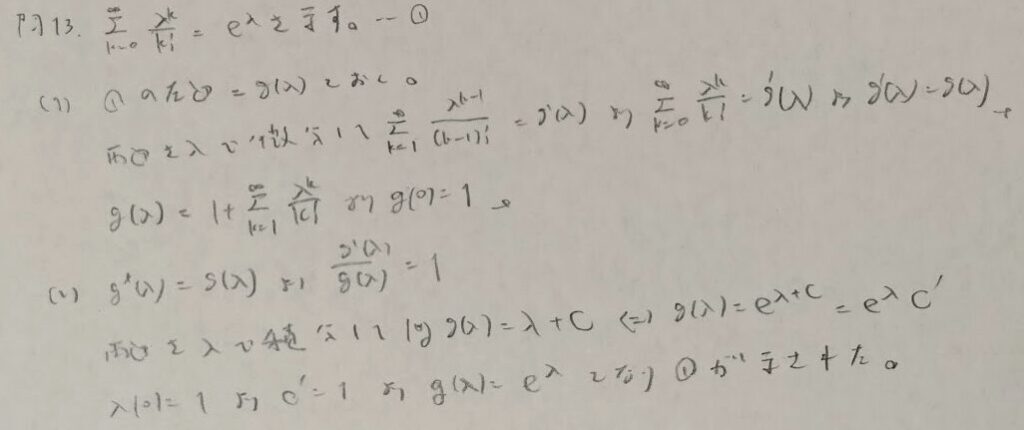 問13. \sum_{k=0}^{\infty} \frac{λ^k}{k!} = e^λ を示す。…①
(1) ①の左辺 = g(λ) とおく。
両辺をλで微分して \sum_{k=1}^{\infty} \frac{λ^{k-1}}{(k-1)!} = g'(λ) より \sum_{k=0}^{\infty} \frac{λ^k}{k!} = g'(λ) より g'(λ) = g(λ)
g(λ) = 1 + \sum_{k=1}^{\infty} \frac{λ^k}{k!} より g(0) = 1
(2) g'(λ) = g(λ) より \frac{g'(λ)}{g(λ)} = 1
両辺をλで積分して log g(λ) = λ + C ⇔ g(λ) = e^{λ+C} = e^λ C'
λ(0) = 1 より C' = 1 より g(λ) = e^λ となり ① が示された。